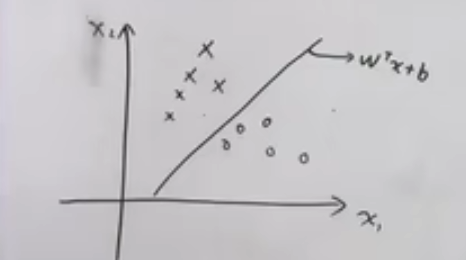 x₂
wᵀx+b
x₁